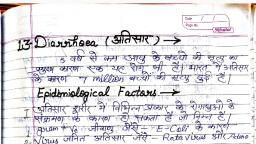 Date
Page No.
1.3 - Diarrhoea (अतिसार) →
5 वर्ष से कम आयु के बच्चों की मृत्यु का
प्रमुख कारण एक यह रोग भी है। भारत में अतिसार
के कारण 1 million बच्चों की मृत्यु हुई है।
Epidemiological Factors →
अतिसार शरीर में विभिन्न प्रकार के रोगाणुओं के
संक्रमण के कारण हो सकता है जो निम्न है।
Gram -Ve जीवाणु जैसे - E-Coli के
Virus जनित अतिसार जैसे - Rota virus और Adeno